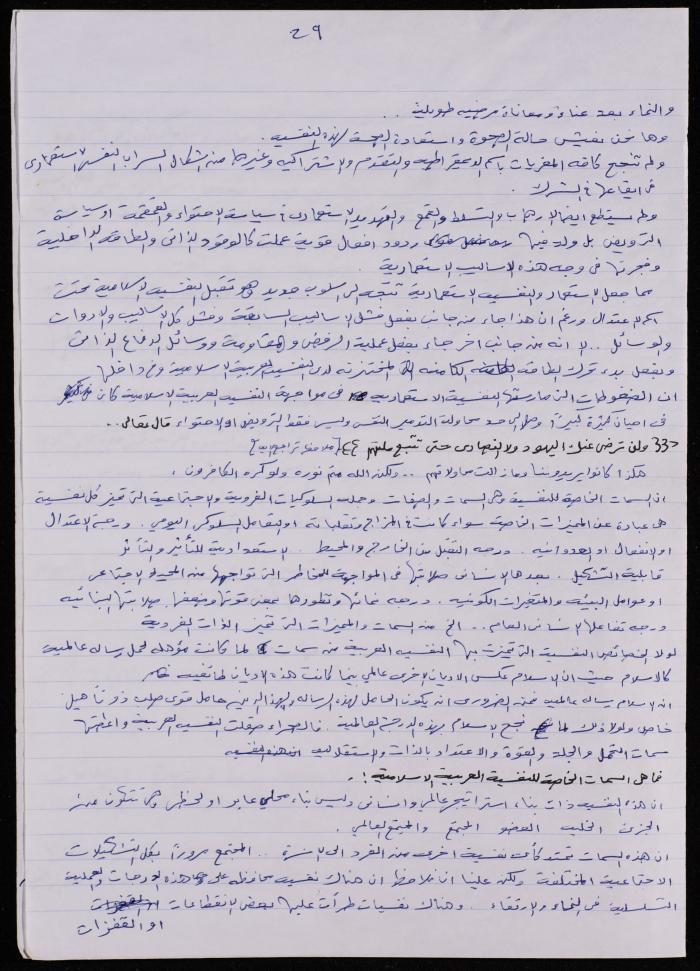 ٢٩
والنماء بعد عناء ومعاناة مرضية طويلة . .
وها نحن نعيش حالة الصحوة واستعادة الصحة لهذه النفسية .
ولم تنجح كافة المغريات باسم الديمقراطية والتقدم والاشتراكية وغيرها من اشكال السراب النفسي الاستعماري
في ايقاعها في الشرك .
ولم يستطع ايضا الارهاب والتسلط والقمع والتهديد الاستعماري في سياسة الاحتواء والقمقمة او سياسة
الترويض بل ولد فيها ردود افعال قوية عملت كالوقود الذاتي والطاقة الداخلية
وفجرتها في وجه هذه الاساليب الاستعمارية .
مما جعل الاستعمار والنفسية الاستعمارية تتجه الى اسلوب جديد وهو تقبل النفسية الاسلامية تحت
اسم الاعتدال ورغم ان هذا جاء من جانب بفعل فشل الاساليب السابقة وفشل كل الاساليب والادوات
والوسائل .. الا انه من جانب اخر جاء بفعل عملية الرفض والمقاومة ووسائل الدفاع الذاتي
وبفعل بدء تحرك الطاقة الكامنة المختزنة لدى النفسية العربية الاسلامية ومن داخلها
ان الضغوطات التي مارستها النفسية الاستعمارية في مواجهة النفسية العربية الاسلامية كان
في احيان كثيرة كبيرًا وصل الى حد محاولة التدمير النفسي وليس فقط الترويض او الاحتواء قال تعالى . .
ولن ترضى عنك اليهود ولا النصارى حتى تتبع ملتهم
هكذا كانوا يريدوننا وما زالت محاولاتهم .. ولكن الله متم نوره ولو كره الكافرون .
ان السمات الخاصة للنفسية وهي السمات والصفات وجملة السلوكيات الفردية والاجتماعية التي تميز كل نفسية
هي عبارة عن المميزات الخاصة سواء كانت في المزاج وتقلباته او التفاعل السلوكي اليومي . ودرجة الاعتدال
او الانفعال او العدوانية . ودرجة التقبل من الخارج والمحيط . الاستعدادية للتأثير والتأثر
قابلية التشكيل . بعدها الانساني صلابتها في المواجهة للمخاطر التي تواجهها من المحيط الاجتماعي
او عوامل البيئة والمتغيرات الكونية . ودرجة نمائها وتطورها بمعنى قوتها وضعفها صلابتها البنائية
ودرجة تفاعلها الانساني العام .. الخ من السمات والمميزات التي تميز الذات الفردية
لولا الخصائص النفسية التي تميزت بها النفسية العربية من سمات لما كانت مؤهلة لحمل رسالة عالمية
كالاسلام حيث ان الاسلام عكس الاديان الاخرى عالمي بينما كانت هذه الاديان لطائفية
ان الاسلام رسالة عالمية فمن الضروري ان يكون الحامل لهذه الرسالة ولهذا الدين حامل قوي صلب ذو تأهيل
خاص ولولا ذلك لما نجح الاسلام بهذه الدرجة العالمية . فالصحراء صقلت النفسية العربية واعطتها
سمات التحمل والجلد والقوة والاعتداد بالذات والاستقلالية ان هذه النفسية
فما هي السمات الخاصة للنفسية العربية الاسلامية ؟ .
ان هذه النفسية ذات بناء استراتيجي عالمي وانساني وليس بناء محلي عابر او لحظي وهي تتكون من :
الجزئ الخلية العضو المجتمع والمجتمع العالمي .
ان هذه السمات تمتد كأي نفسية اخرى من الفرد الى الاسرة .. المجتمع مرورًا بكل التشكيلات
الاجتماعية المختلفة ولكن علينا ان نلاحظ ان هناك نفسية محافظة على هذه الدرجات والعملية
التسلسلية في النماء والارتقاء . وهناك نفسيات طرأت عليها بعض الانقطاعات
او القفزات